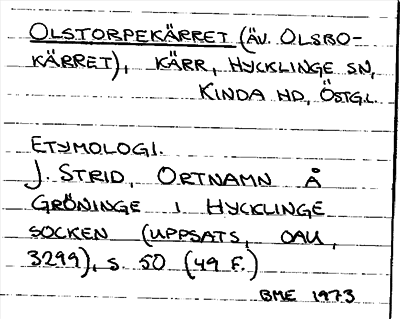 OLSTORPEKÄRRET (ÄV. OLSBO-
KÄRRET), KÄRR, HYCKLINGE SN,
KINDA HD, ÖSTG.L.
ETYMOLOGI.
J. STRID, ORTNAMN Å
GRÖNINGE I HYCKLINGE
SOCKEN (UPPSATS, OAU,
3299), S. 50 (49 F.)
BME 1973